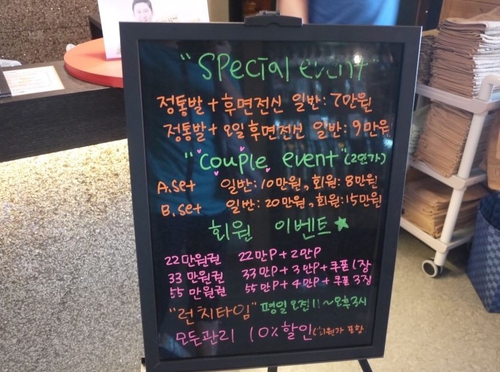 "special event"
정통발 + 후면전신 일반: 7만원
정통발 + 오일후면전신 일반: 9만원
"couple event" (2인가)
A. set 일반: 10만원, 회원: 8만원
B. set 일반: 20만원, 회원: 15만원
회원 이벤트★
22만원권 22만P + 2만P
33만원권 33만P + 3만P + 쿠폰 1장
55만원권 55만P + 4만P + 쿠폰 3장
"런치타임" 평일 오전 11~오후3시
모든관리 10%할인 (회원가 포함)